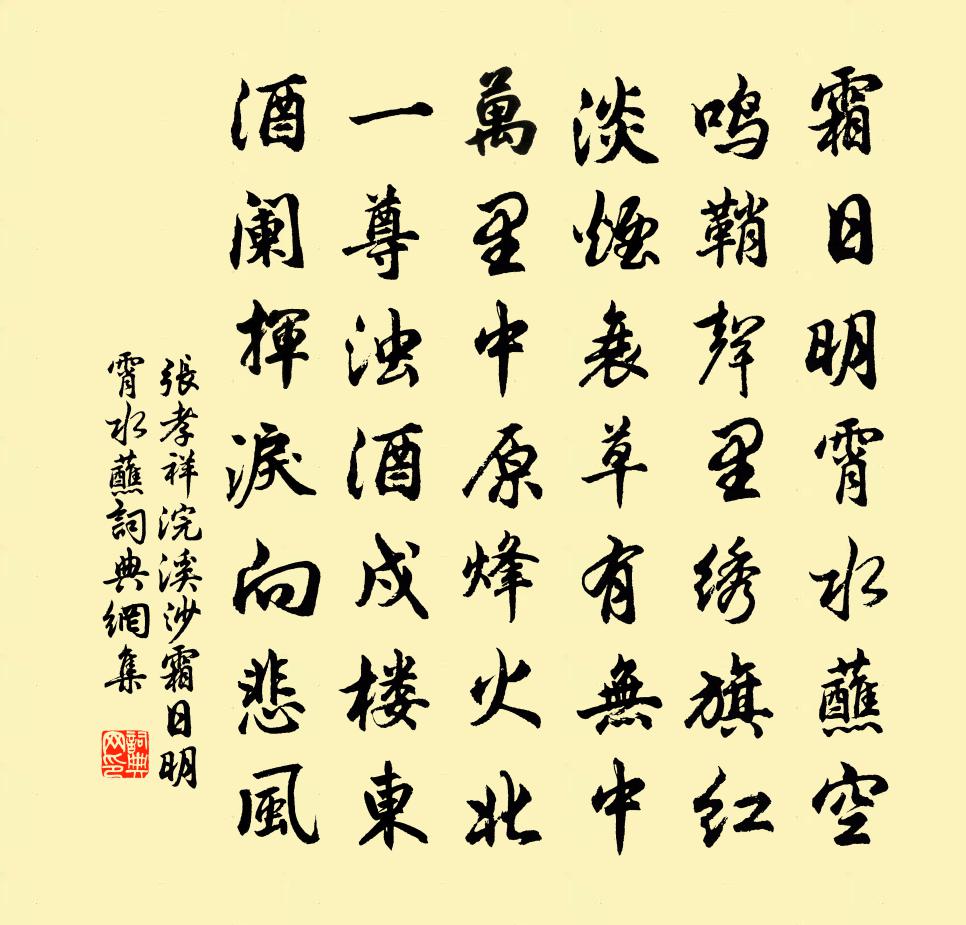 霜日明霄水蘸空
鸣鞘聲里绣旗红
淡煙衰草有無中
萬里中原烽火北
一尊浊酒戍楼東
酒阑揮淚向悲風
張孝祥浣溪沙霜日明
霄水蘸詞典網集
詞典网印